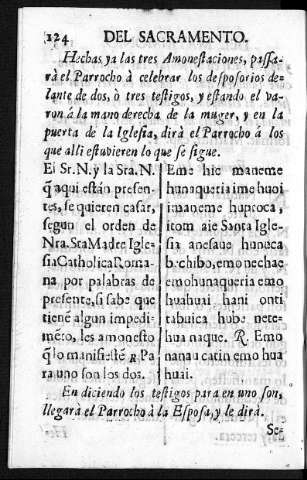 124 DEL SACRAMENTO.
Hechas ya las tres Amonestaciones, passa-
rà el Parrocho à celebrar los desposorios de-
lante de dos, ò tres testigos, y estando el va-
ron à la mano derecha de la muger, y en la
puerta de la Iglesia, dirà el Parrocho à los
que alli estuvieren lo que se sigue.
El Sr. N. y la Sra. N.
q̃ aqui están presen-
tes, se quieren casar,
segun el orden de
Nra. Sta Madre Igle-
sia Catholica Roma-
na por palabras de
presente, si sabe que
tiene algun impedi-
mẽto, les amonesto
q̃ lo manifieste ℟. Pa
ra uno son los dos.
Eme hic maneme
hunaqueria ime huoi
imaneme huproca,
itom aie Santa Igle-
sia anesaue huneca
bechibo, emo nechae
emo hunaqueria emo
huahuai hani onti
tabuica hube nete-
hua naque. ℟. Emo
nanau catin emo hua
huai.
En diciendo los testigos para en uno son,
llegarà el Parrocho à la Esposa, y le dirà.
Se-